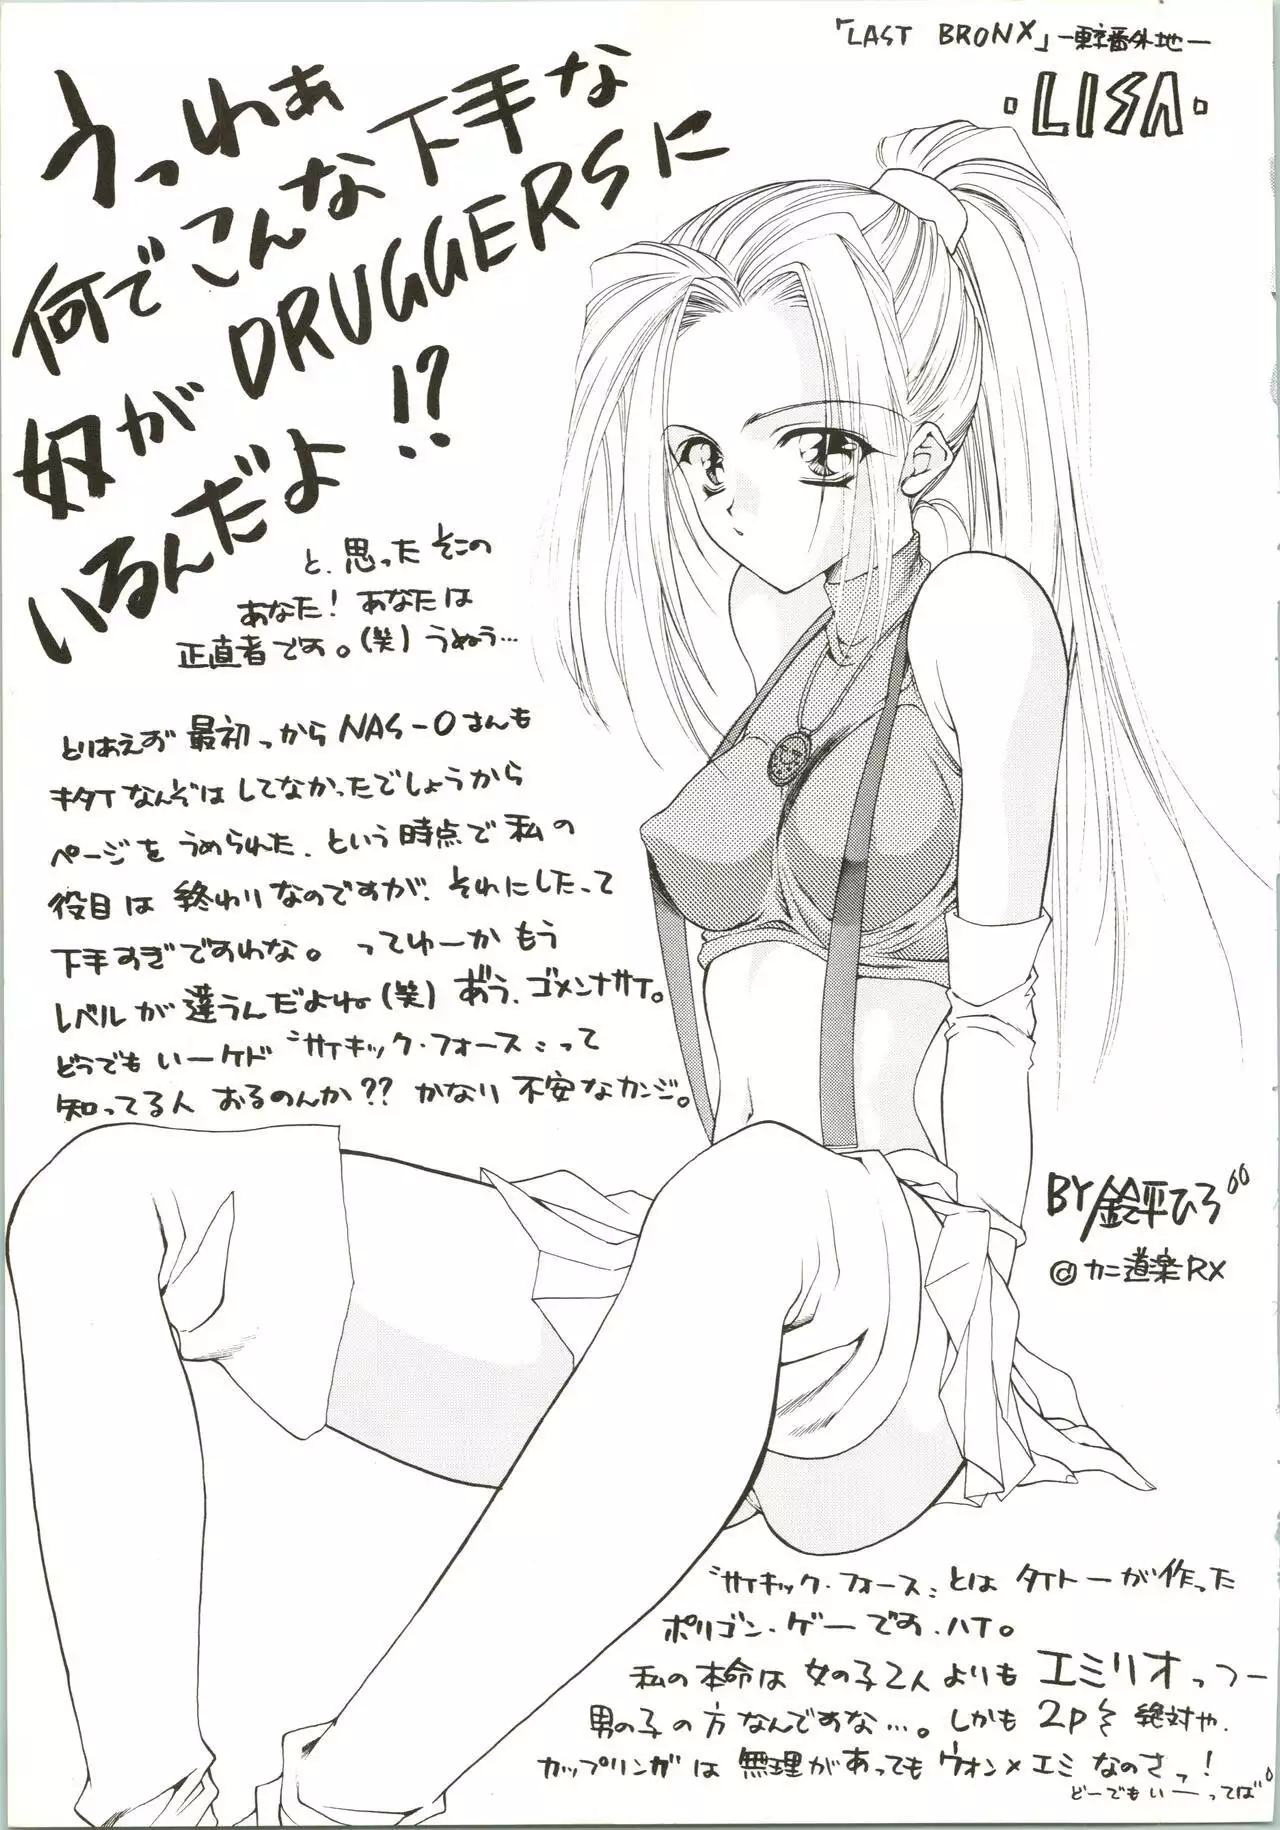 「LAST BRONX」―東京番外地―
・LISA・
うっわぁ
何でこんな下手な
奴がDRUGGERSに
いるんだよ!?
と、思ったそこの
あなた!あなたは
正直者です。(笑)うぬう…
とりあえず最初っからNAS-Oさんも
キタイなんぞはしてなかったでしょうから
ページをうめられた、という時点で私の
役目は終わりなのですが、それにしたって
下手すぎですわな。ってゆーかもう
レベルが違うんだよね。(笑)あう、ゴメンナサイ。
どうでもいーケド〝サイキック・フォース〟って
知ってる人おるのんか??かなり不安なカンジ。
BY鈴平ひろ
@カニ道楽RX
〝サイキック・フォース〟とはタイトーが作った
ポリゴン・ゲーです、ハイ。
私の本命は女の子2人よりもエミリオっつー
男の子の方なんですな…。しかも2P 絶対や、
カップリングは無理があってもウォン×エミなのさっ!
どーでもいーってば